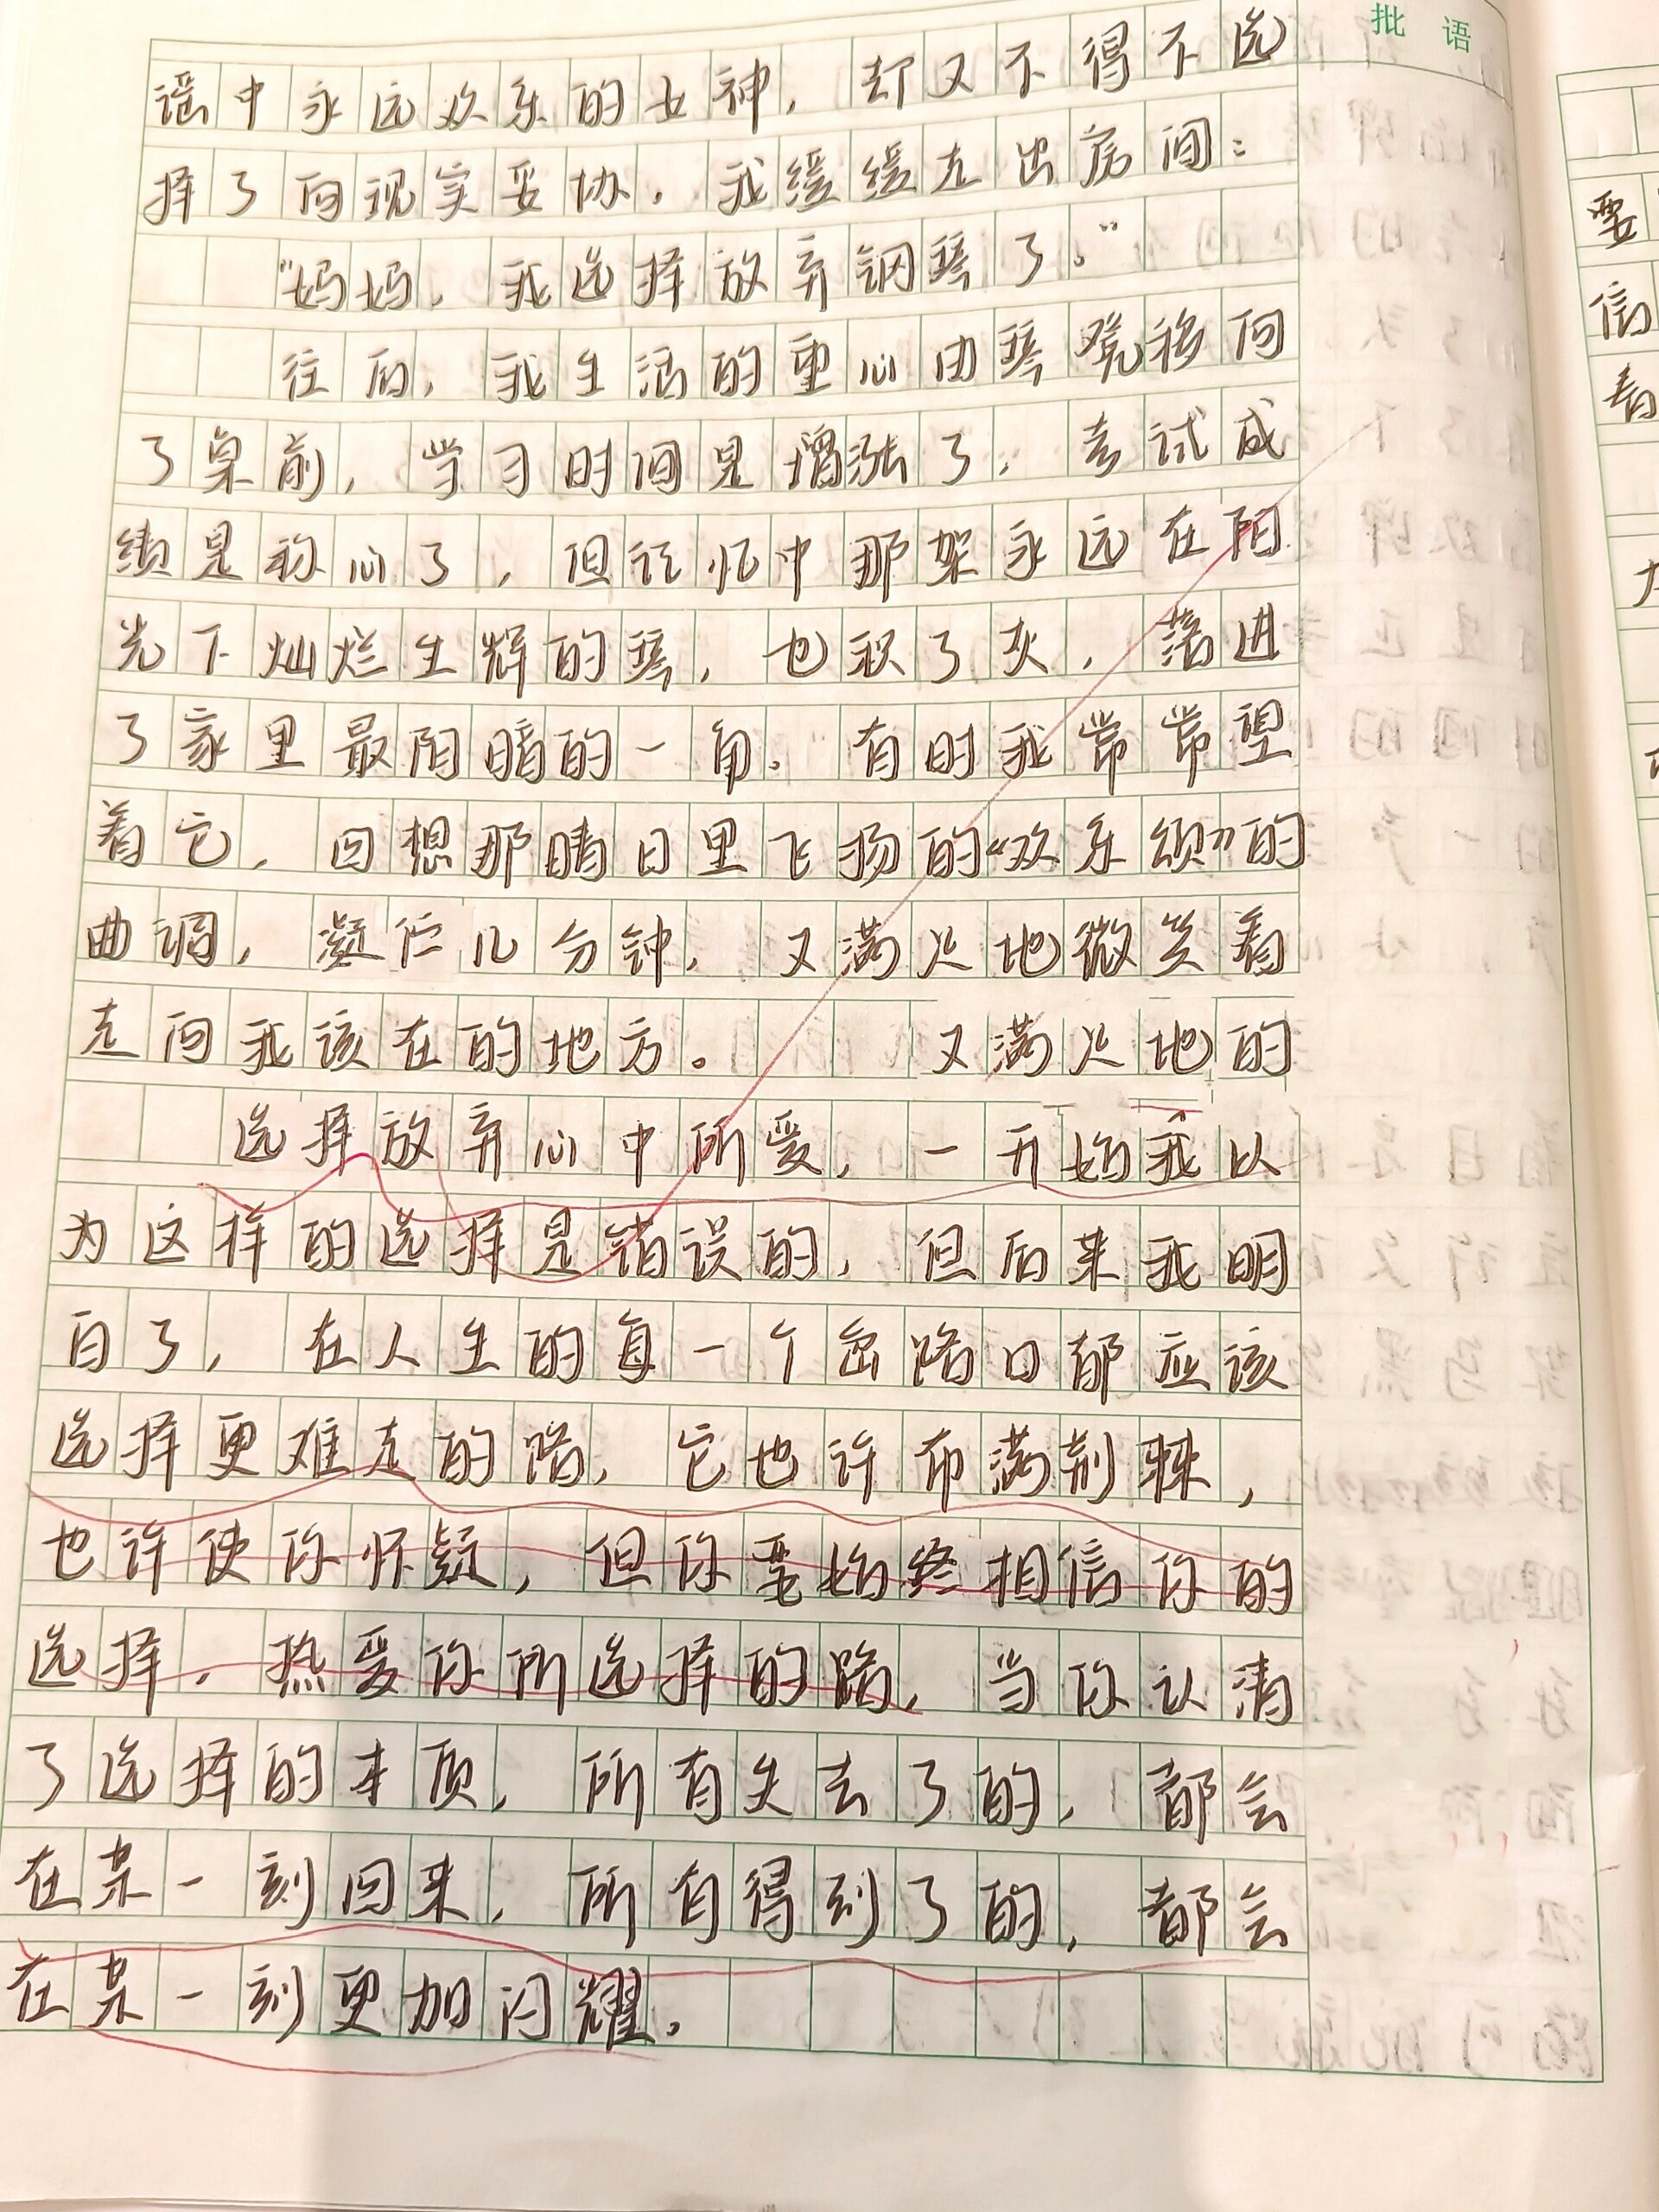 批语
谣中永远欢乐的女神，却又不得不选
择了向现实妥协，我缓缓走出房间：
“妈妈，我选择放弃钢琴了。”
往后，我生活的重心由琴凳移向
了桌前，学习时间是增涨了，考试成
绩是称心了，但记忆中那架永远在阳
光下灿烂生辉的琴，也积了灰，落进
了家里最阴暗的一角。有时我常常望
着它，回想那晴日里飞扬的“欢乐颂”的
曲调，凝伫几分钟，又满足地微笑着
走向我该在的地方。 又满足地的
选择放弃心中所爱，一开始我以
为这样的选择是错误的，但后来我明
白了，在人生的每一个岔路口都应该
选择更难走的路，它也许布满荆棘，
也许使你怀疑，但你要始终相信你的
选择，热爱你所选择的路，当你认清
了选择的本质，所有失去了的，都会
在某一刻回来，所有得到了的，都会
在某一刻更加闪耀。
要
信
着